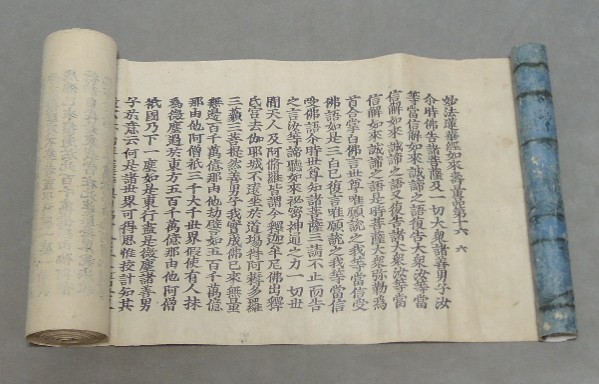 妙法蓮華經如來壽量品第十六　六
尒時佛告諸菩薩及一切大衆諸善男子汝
等當信解如來誠諦之語復告大衆汝等當
信解如來誠諦之語又復告諸大衆汝等當
信解如來誠諦之語是時菩薩大衆弥勒為
首合掌白佛言世尊唯願說之我等當信受
佛語如是三白已復言唯願說之我等當信
受佛語尒時世尊知諸菩薩三請不止而告
之言汝等諦聽如來祕密神通之力一切世
間天人及阿脩羅皆謂今釋迦牟尼佛出釋
氏宮去伽耶城不遠坐於道場得阿耨多羅
三藐三菩提然善男子我實成佛已來無量
無邊百千萬億那由他劫譬如五百千萬億
那由他阿僧祇三千大千世界假使有人抹
為微塵過於東方五百千萬億那由他阿僧
祇國乃下一塵如是東行盡是微塵諸善男
子於意云何是諸世界可得思惟校計知其